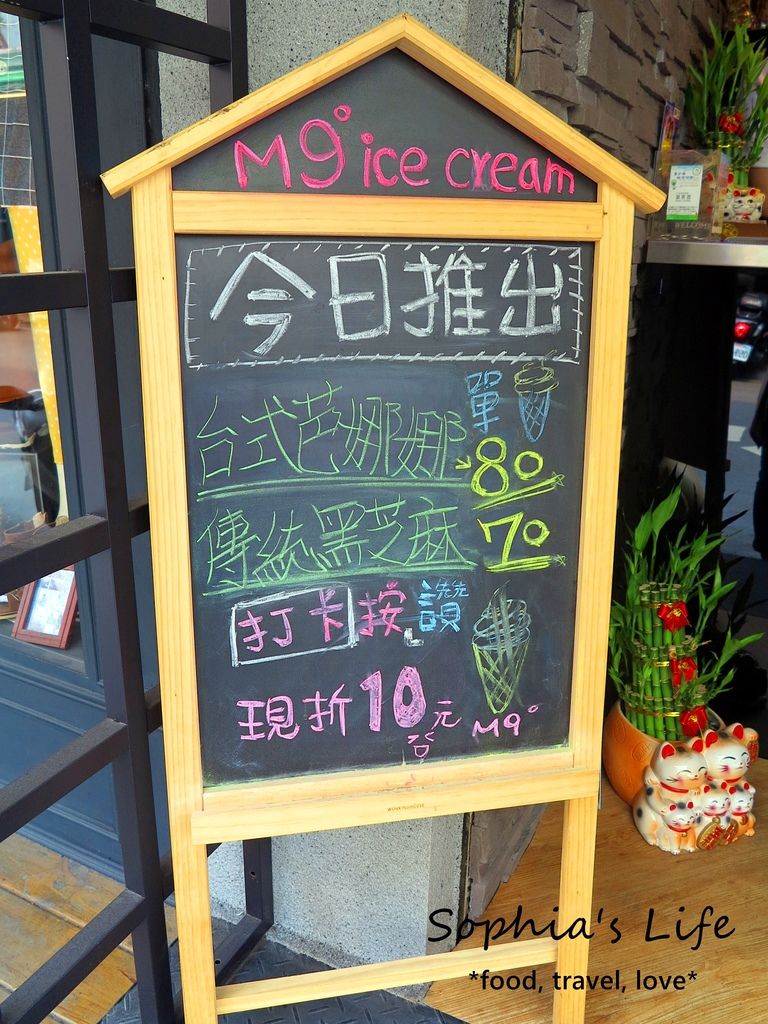 M9° ice cream
今日推出
單
台式芭娜娜 80
傳統黑芝麻 70
打卡按讚
現折10元 M9°
WELCOME
Sophia's Life
*food, travel, love*